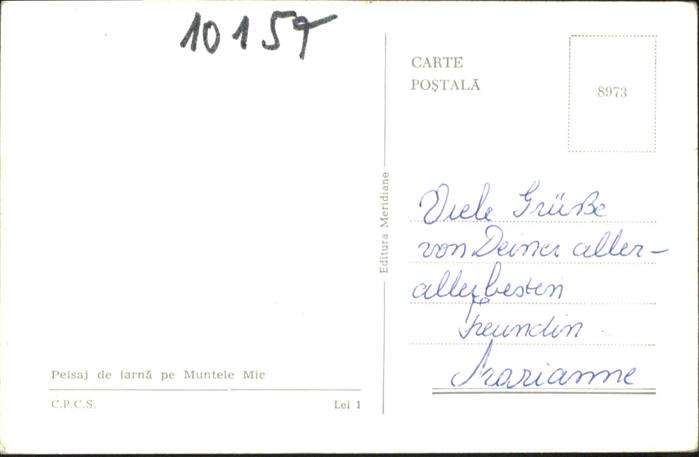 10157
CARTE
POŞTALĂ
8973
Editura Meridiane
Viele Grüße
von Deiner aller-
allerbesten
Freundin
Marianne
Peisaj de iarnă pe Muntele Mic
C.P.C.S.
Lei 1